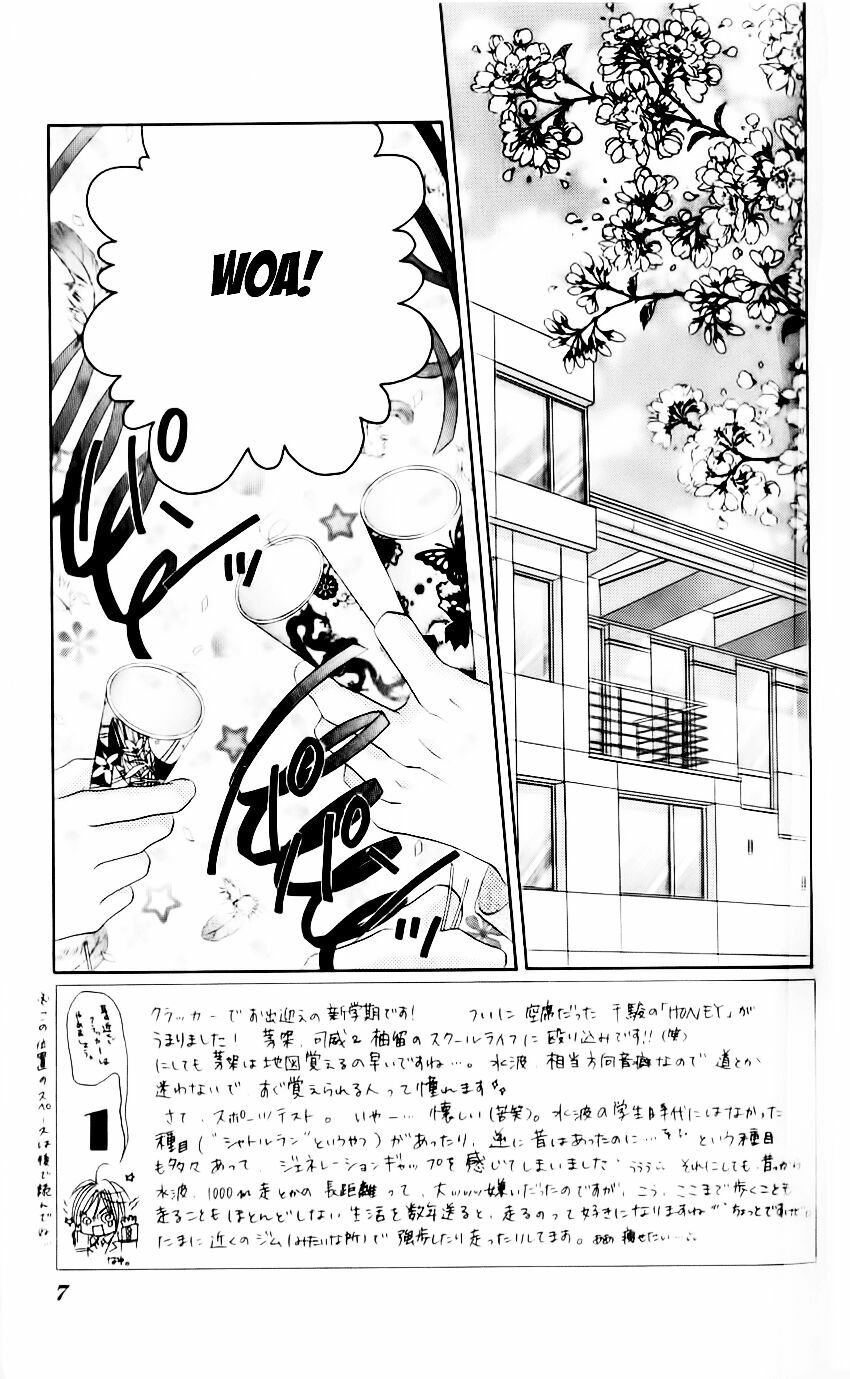 WOA!
パン
パン
パン
クラッカーでお出迎えの新学期です! ついに空席だった千駿の「HONEY」が
うまりました! 芽架、司威&柚留のスクールライフに殴り込みです!!(笑)
にしても芽架は地図覚えるの早いですね…。水波、相当方向音痴なので道とか
迷わないで、すぐ覚えられる人って憧れます
さて、スポーツテスト。いやー…懐しい(苦笑)。水波の学生時代にはなかった
種目("シャトルラン"というやつ)があったり、逆に昔はあったのに… という種目
も多々あって、ジェネレーションギャップを感じてしまいました うううう それにしても、昔っから
水波、1000m走とかの長距離って、大ッッッ嫌いだったのですが、こう、ここまで歩くことも
走ることもほとんどしない生活を数年送ると、走るのって好きになりますね ちょっとですが
たまに近くのジム(みたいな所)で強歩したり走ったりしてます。ああ 痩せたい…
最近で
クラッカーは
1
なゆ。
※この位置のスペースは後で読んでね…
7